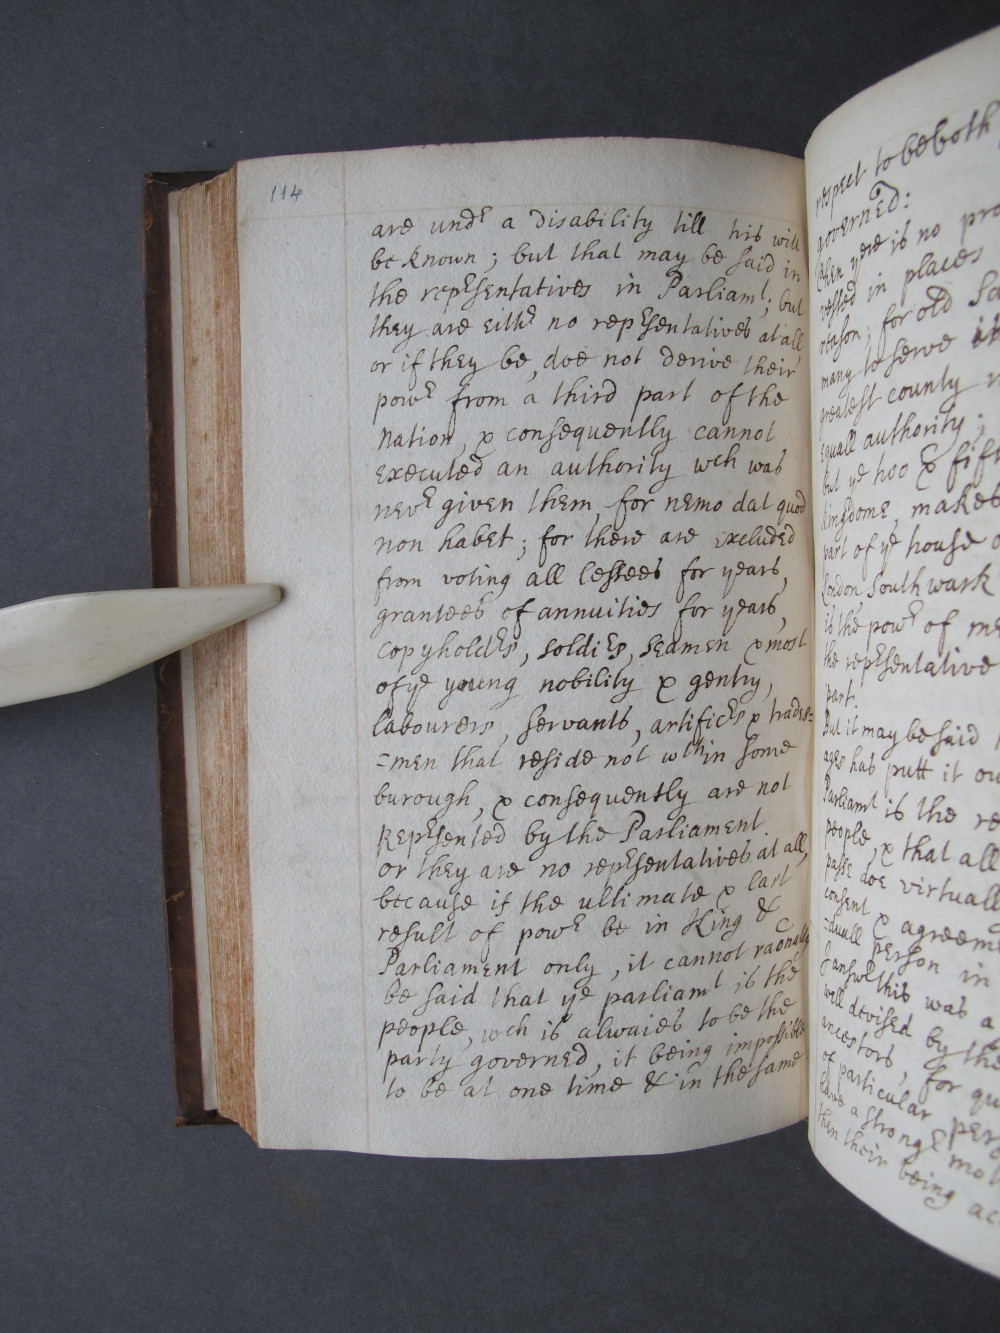 114
are undr a disability till his will
be known; but that may be said in
the repsentatives in Parliamt; but
they are eithr no repsentatives at all,
or if they be, doe not derive their
powr from a third part of the
Nation, & consequently cannot
executed an authority wch was
nevr given them, for nemo dat quod
non habet; for there are excluded
from voting all lessees for years,
grantees of annuities for years,
copyholdrs, soldirs, seamen & most
of ye young nobility & gentry,
labourers, servants, artificrs & trades=
=men that reside not wthin some
burough, & consequently are not
Repsented by the Parliament.
or they are no repsentatives at all,
because if the ultimate & last
result of powr be in King &
Parliament only, it cannot raonally
be said that ye parliamt is the
people, wch is alwaies to be the
party governed, it being impossible
to be at one time & in the same
respect to be both
governed:
then there is no
vested in places
reason; for old
many to serve
greatest county
equall authority;
but ye &
kingdome, makes
part of ye house
London Southwark
is the powr of
the repsentative
part.
But it may be said
ages has putt it
Parliamt is the
people, & that all
passe doe
consent &
=duall person in
I answr this was a
well devised by the
ancestors, for
of particular
have a strongr
then their being